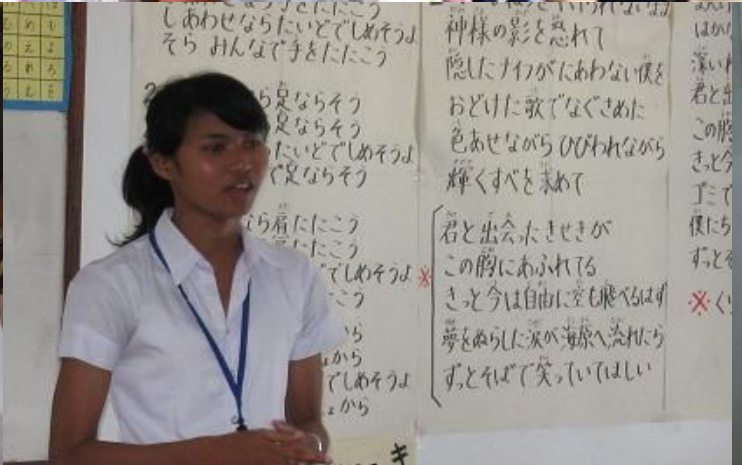 しあわせならたいどでしめそうよ
そら みんなで手をたたこう
ら足ならそう
足ならそう
たいどでしめそうよ
で足ならそう
なら肩たたこう
たたこう
でしめそうよ
こう
から
から
でしめそうよ
から
神様の影を恐れて
隠したナイフがにあわない僕を
おどけた歌でなぐさめた
色あせながら ひびわれながら
輝くすべを求めて
※
君と出会ったきせきが
この胸にあふれてる
きっと今は自由に空も飛べるはず
夢をぬらした涙が 海原へ流れたら
ずっとそばで笑っていてほしい
はか
深い
君と出
この胸
きっと今
ゴミで
僕たち
ずっとそ
※く
キ